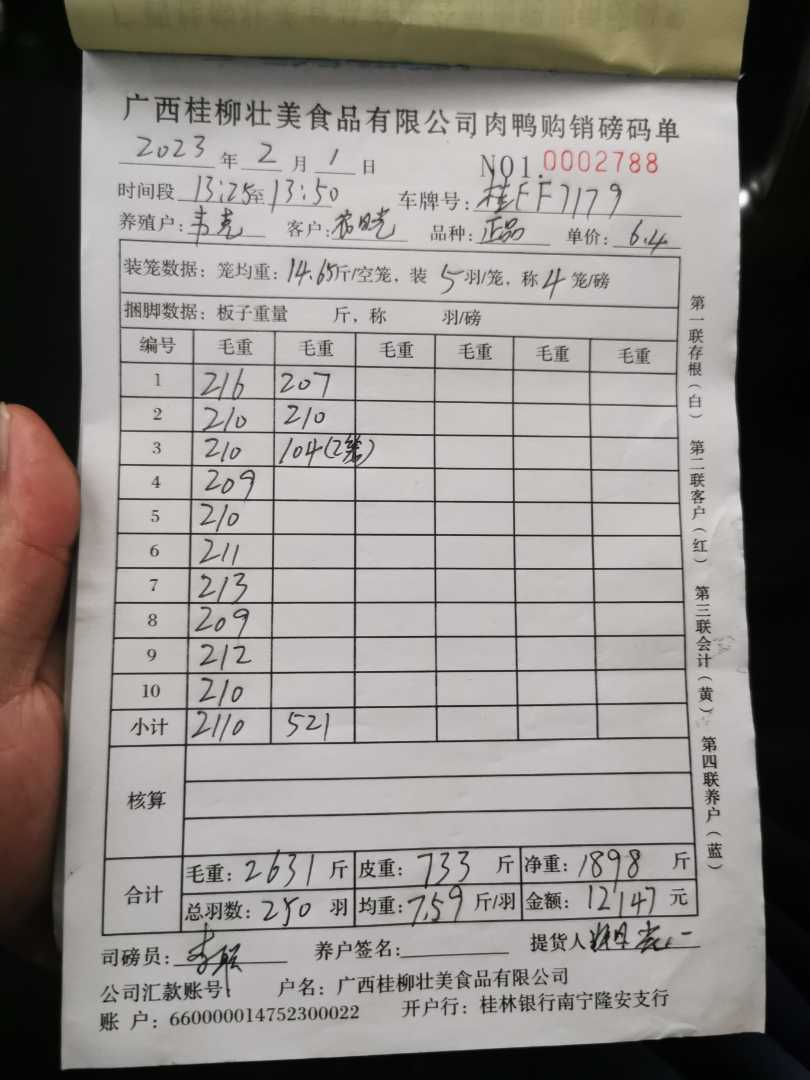 广西桂柳壮美食品有限公司肉鸭购销磅码单
2023 年 2 月 1 日 NO1. 0002788
时间段 13:25 至 13:50 车牌号: 桂FF7179
养殖户: 韦 客户: 品种: 正品 单价: 6.4
装笼数据: 笼均重: 14.65 斤/空笼, 装 5 羽/笼, 称 4 笼/磅
捆脚数据: 板子重量 斤, 称 羽/磅
编号 毛重 毛重 毛重 毛重 毛重 毛重
1 216 207
2 210 210
3 210 104(2笼)
4 209
5 210
6 211
7 213
8 209
9 212
10 210
小计 2110 521
核算
合计 毛重: 2631 斤 皮重: 733 斤 净重: 1898 斤
总羽数: 250 羽 均重: 7.59 斤/羽 金额: 12147 元
司磅员: 养户签名: 提货人
公司汇款账号: 户名: 广西桂柳壮美食品有限公司
账 户: 660000014752300022 开户行: 桂林银行南宁隆安支行
第一联存根(白) 第二联客户(红) 第三联会计(黄) 第四联养户(蓝)